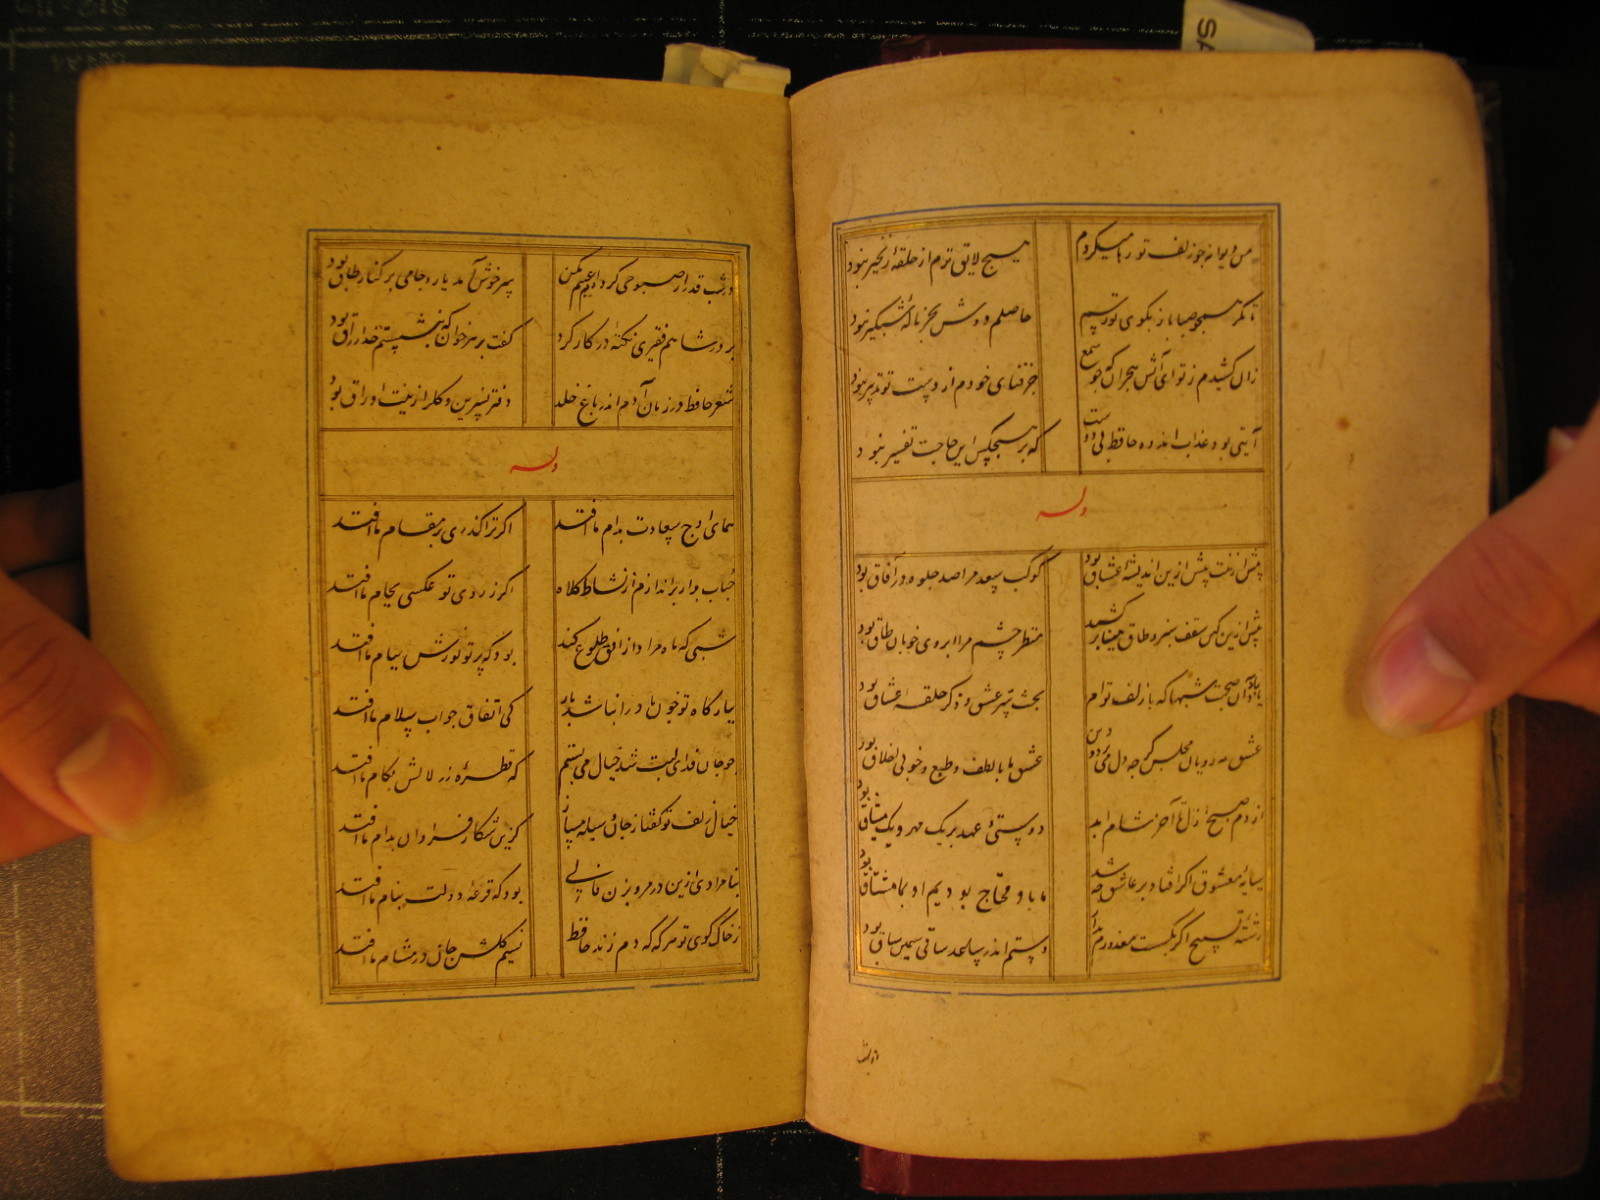 من دیوانه چو زلف تو رها میکردم هیچ لایق ترم از حلقهٔ زنجیر نبود
تا مگر همچو صبا باز بکوی تو رسم حاصلم دوش بجز نالهٔ شبگیر نبود
زان کشیدم ز تو ای آتش هجران که چو شمع جز فنای خودم از دست تو تدبیر نبود
آیتی بود عذاب انده حافظ بی دوست که بر هیچکس این حاجت تفسیر نبود
وله
پیش ازینت بیش ازین اندیشهٔ عشاق بود کوکب سعد مرا صد جلوه در آفاق بود
پیش ازین کین سقف سبز و طاق مینا برکشند منظر چشم مرا ابروی خوبان طاق بود
یاد باد آن صحبت شبها که با زلف توام بحث سر عشق و ذکر حلقهٔ عشاق بود
عشق مه رویان مجلس گرچه دل می برد و دین عشق ما با لطف طبع و خوبی اخلاق بود
از دم صبح ازل تا آخر شام ابد دوستی و عهد بر یک مهر و یک میثاق بود
سایهٔ معشوق اگر افتاد بر عاشق چه شد ما باو محتاج بودیم او بما مشتاق بود
رشتهٔ تسبیح اگر بکسست معذورم بدار دستم اندر ساعد ساقی سیمین ساق بود
در شب
در شب قدر ار صبوحی کرده ام عیبم مکن سرخوش آمد یار و جامی بر کنار طاق بود
بر در شاهم فقیری نکتهٔ در کار کرد کفت بر هر خوان که بنشستم خدا رزاق بود
شعر حافظ در زمان آدم اندر باغ خلد دفتر نسرین و کل را زینت اوراق بود
وله
همای اوج سعادت بدام ما افتد اکر ترا کذری بر مقام ما افتد
حباب وار براندازم از نشاط کلاه اکر ز روی تو عکسی بجام ما افتد
شبی که ماه مراد از افق طلوع کند بود که پرتو نورش ببام ما افتد
ببارکاه تو چون باد را نباشد بار کی اتفاق جواب سلام ما افتد
چو جان فدای لبت شد خیال می بستم که قطرهٔ ز زلالش بکام ما افتد
خیال زلف تو کفتا ز جان وسیله مساز کزین شکار فراوان بدام ما افتد
بنا مرادی ازین در مرو بزن فالی بود که قرعهٔ دولت بنام ما افتد
ز خاک کوی تو هر که که دم زند حافظ نسیم کلشن جان در مشام ما افتد